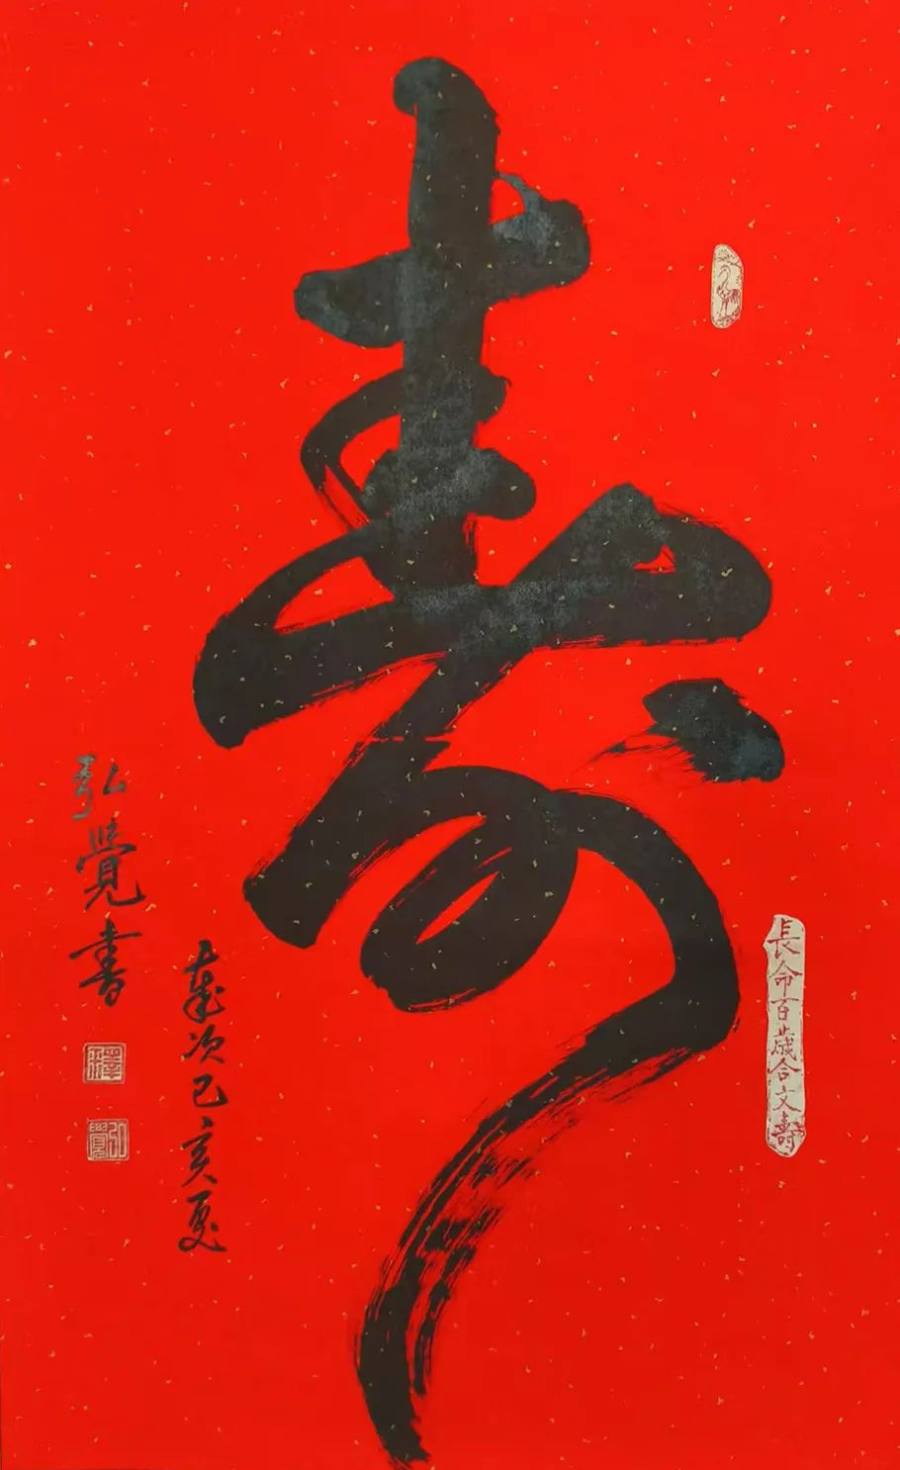 長命百歲合文壽
壽
歲次己亥夏
弘覺書
弘覺